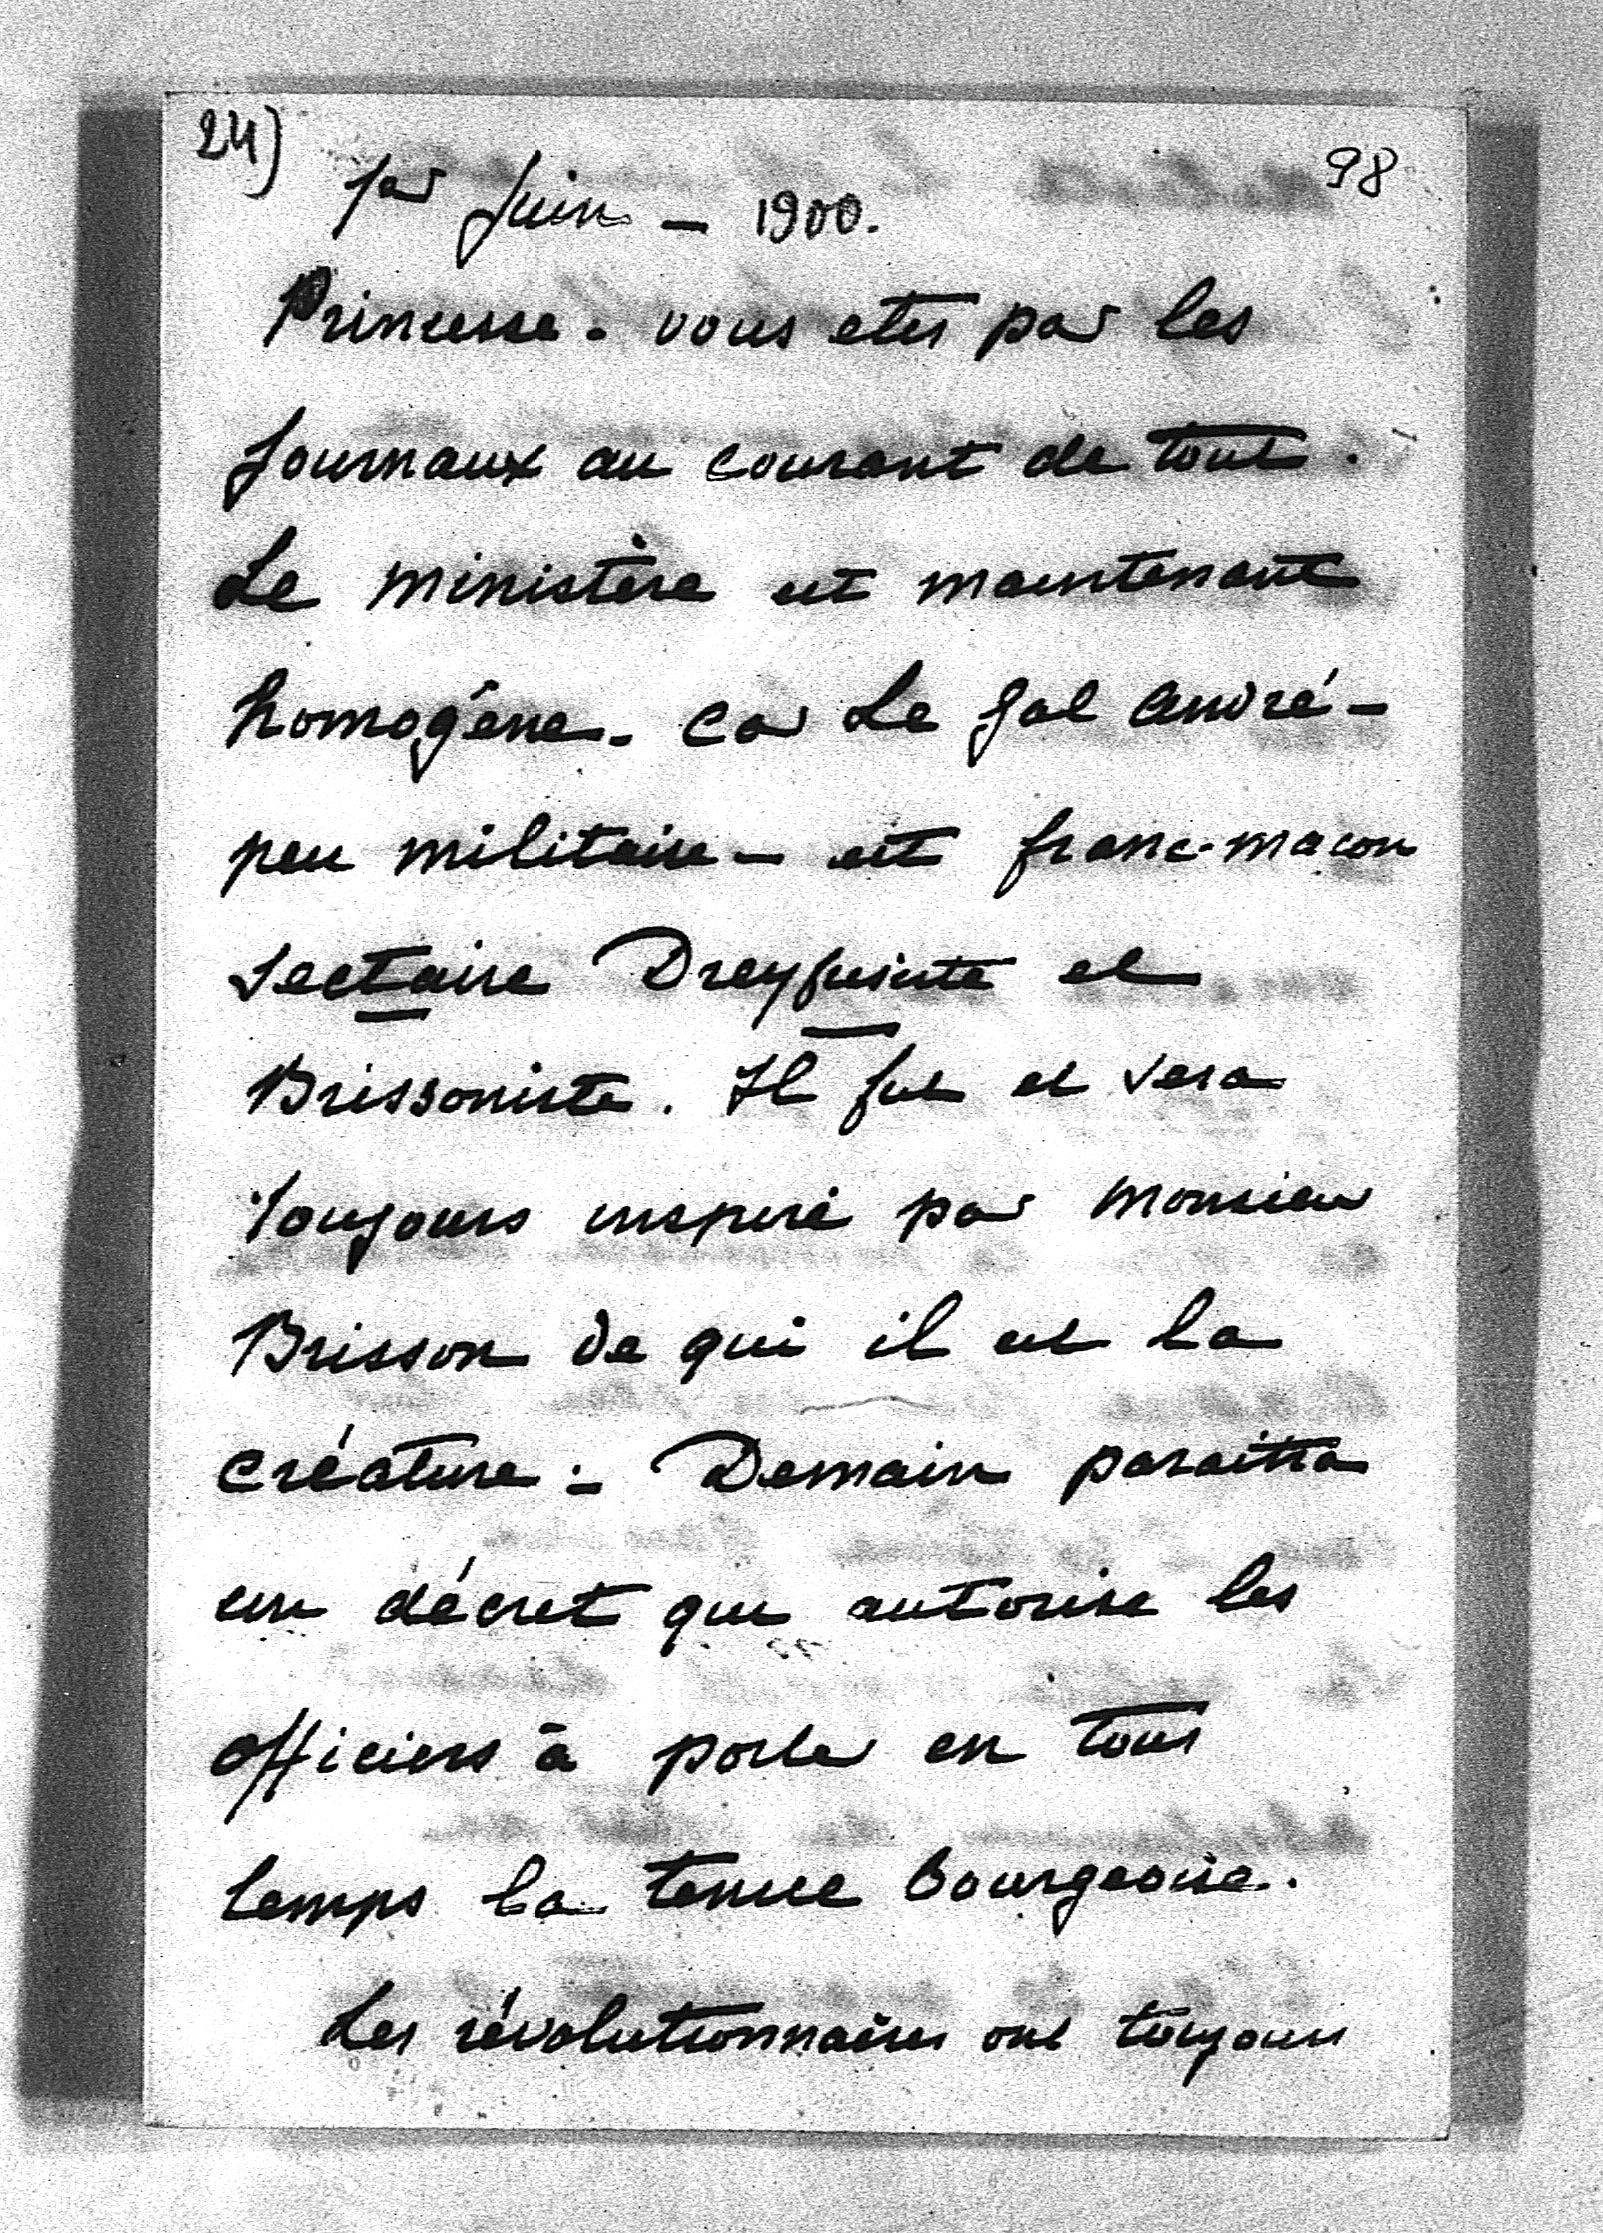 24)
98
1er Juin - 1900.
Princesse. vous etes par les
journaux au courant de tout.
Le ministère est maintenant
homogène. car Le Gal André -
peu militaire - est franc-macon
sectaire Dreyfusiste et
Brissoniste. Il fut et sera
toujours inspiré par Monsieur
Brisson de qui il est la
créature. - Demain paraitra
un décret qui autorise les
officiers à porter en tous
temps la tenue bourgeoise.
Les révolutionnaires ont toujours